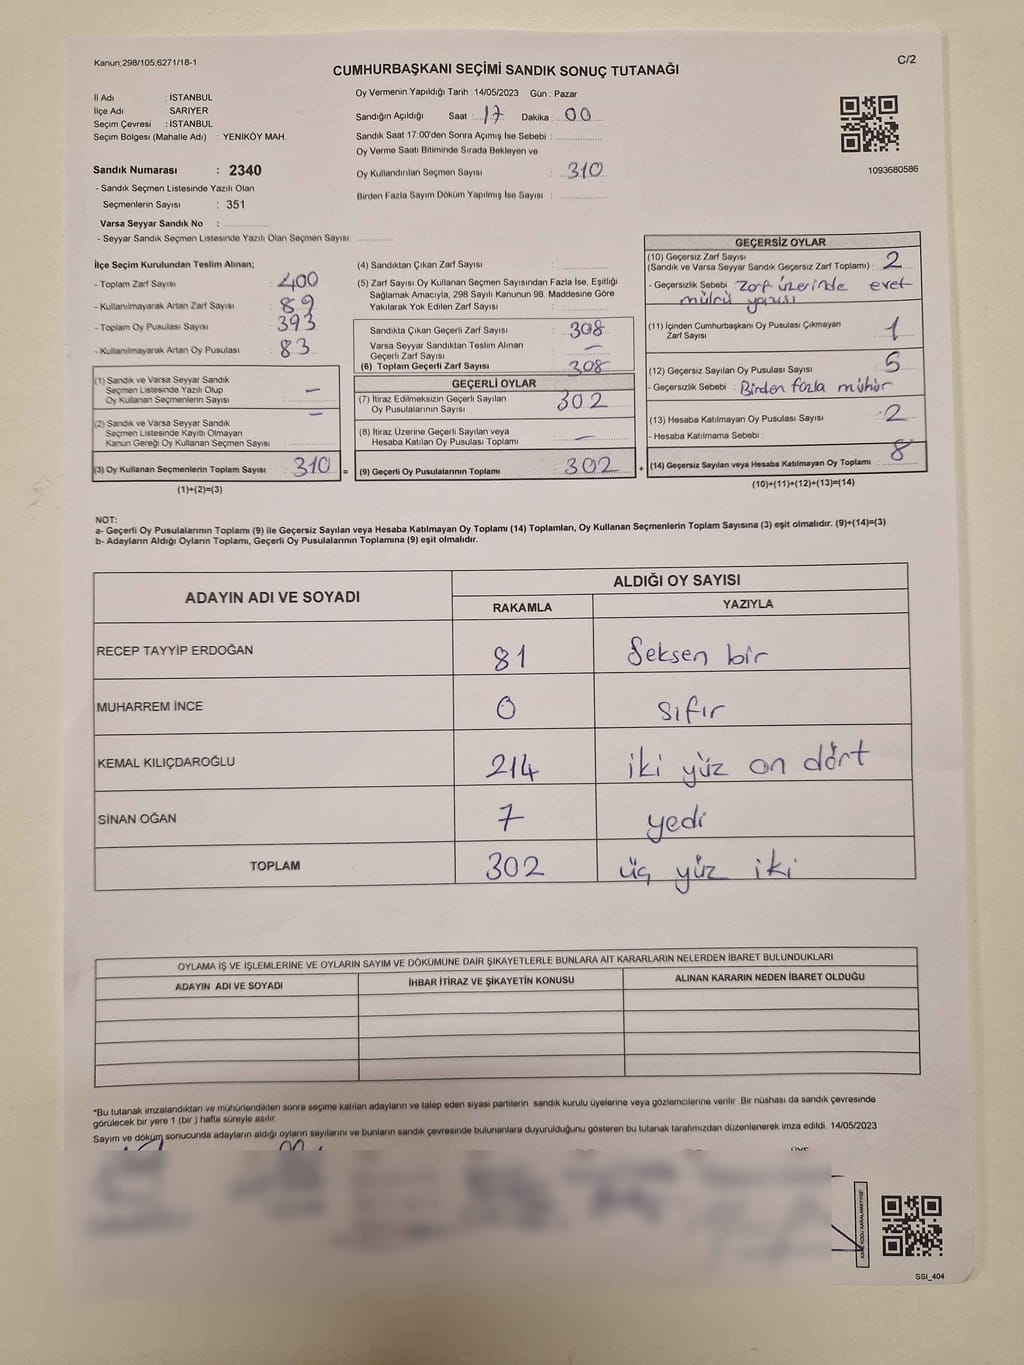 Kanun;298/105;6271/18-1
C/2
CUMHURBAŞKANI SEÇİMİ SANDIK SONUÇ TUTANAĞI
İl Adı : İSTANBUL
İlçe Adı : SARIYER
Seçim Çevresi : İSTANBUL
Seçim Bölgesi (Mahalle Adı) : YENİKÖY MAH.
Sandık Numarası : 2340
- Sandık Seçmen Listesinde Yazılı Olan
Seçmenlerin Sayısı : 351
Varsa Seyyar Sandık No :
- Seyyar Sandık Seçmen Listesinde Yazılı Olan Seçmen Sayısı:
Oy Vermenin Yapıldığı Tarih : 14/05/2023 Gün : Pazar
Sandığın Açıldığı Saat : 17 Dakika : 00
Sandık Saat 17:00'den Sonra Açımış İse Sebebi :
Oy Verme Saati Bitiminde Sırada Bekleyen ve
Oy Kullandırılan Seçmen Sayısı : 310
Birden Fazla Sayım Döküm Yapılmış İse Sayısı :
1093680586
İlçe Seçim Kurulundan Teslim Alınan;
- Toplam Zarf Sayısı : 400
- Kullanılmayarak Artan Zarf Sayısı : 89
- Toplam Oy Pusulası Sayısı : 393
- Kullanılmayarak Artan Oy Pusulası : 83
(1) Sandık ve Varsa Seyyar Sandık
Seçmen Listesinde Yazılı Olup
Oy Kullanan Seçmenlerin Sayısı : —
(2) Sandık ve Varsa Seyyar Sandık
Seçmen Listesinde Kayıtlı Olmayan
Kanun Gereği Oy Kullanan Seçmen Sayısı : —
(3) Oy Kullanan Seçmenlerin Toplam Sayısı : 310 =
(1)+(2)=(3)
(4) Sandıktan Çıkan Zarf Sayısı :
(5) Zarf Sayısı Oy Kullanan Seçmen Sayısından Fazla İse, Eşitliği
Sağlamak Amacıyla, 298 Sayılı Kanunun 98. Maddesine Göre
Yakılarak Yok Edilen Zarf Sayısı :
Sandıkta Çıkan Geçerli Zarf Sayısı : 308
Varsa Seyyar Sandıktan Teslim Alınan
Geçerli Zarf Sayısı : —
(6) Toplam Geçerli Zarf Sayısı : 308
GEÇERLİ OYLAR
(7) İtiraz Edilmeksizin Geçerli Sayılan
Oy Pusulalarının Sayısı : 302
(8) İtiraz Üzerine Geçerli Sayılan veya
Hesaba Katılan Oy Pusulası Toplamı : —
(9) Geçerli Oy Pusulalarının Toplamı : 302 +
GEÇERSİZ OYLAR
(10) Geçersiz Zarf Sayısı
(Sandık ve Varsa Seyyar Sandık Geçersiz Zarf Toplamı) : 2
- Geçersizlik Sebebi : Zarf üzerinde evet
mührü yazısı
(11) İçinden Cumhurbaşkanı Oy Pusulası Çıkmayan
Zarf Sayısı : 1
(12) Geçersiz Sayılan Oy Pusulası Sayısı : 5
- Geçersizlik Sebebi : Birden fazla mühür
(13) Hesaba Katılmayan Oy Pusulası Sayısı : 2
- Hesaba Katılmama Sebebi :
(14) Geçersiz Sayılan veya Hesaba Katılmayan Oy Toplamı : 8
(10)+(11)+(12)+(13)=(14)
NOT:
a- Geçerli Oy Pusulalarının Toplamı (9) ile Geçersiz Sayılan veya Hesaba Katılmayan Oy Toplamı (14) Toplamları, Oy Kullanan Seçmenlerin Toplam Sayısına (3) eşit olmalıdır. (9)+(14)=(3)
b- Adayların Aldığı Oyların Toplamı, Geçerli Oy Pusulalarının Toplamına (9) eşit olmalıdır.
ADAYIN ADI VE SOYADI
ALDIĞI OY SAYISI
RAKAMLA YAZIYLA
RECEP TAYYİP ERDOĞAN 81 Seksen bir
MUHARREM İNCE 0 sıfır
KEMAL KILIÇDAROĞLU 214 iki yüz on dört
SİNAN OĞAN 7 yedi
TOPLAM 302 üç yüz iki
OYLAMA İŞ VE İŞLEMLERİNE VE OYLARIN SAYIM VE DÖKÜMÜNE DAİR ŞİKAYETLERLE BUNLARA AİT KARARLARIN NELERDEN İBARET BULUNDUKLARI
ADAYIN ADI VE SOYADI İHBAR İTİRAZ VE ŞİKAYETİN KONUSU ALINAN KARARIN NEDEN İBARET OLDUĞU
*Bu tutanak imzalandıktan ve mühürlendikten sonra seçime katılan adayların ve talep eden siyasi partilerin sandık kurulu üyelerine veya gözlemcilerine verilir .Bir nüshası da sandık çevresinde
görülecek bir yere 1 (bir ) hafta süreyle asılır.
Sayım ve döküm sonucunda adayların aldığı oyların sayılarını ve bunların sandık çevresinde bulunanlara duyurulduğunu gösteren bu tutanak tarafımızdan düzenlenerek imza edildi. 14/05/2023
SSI_404